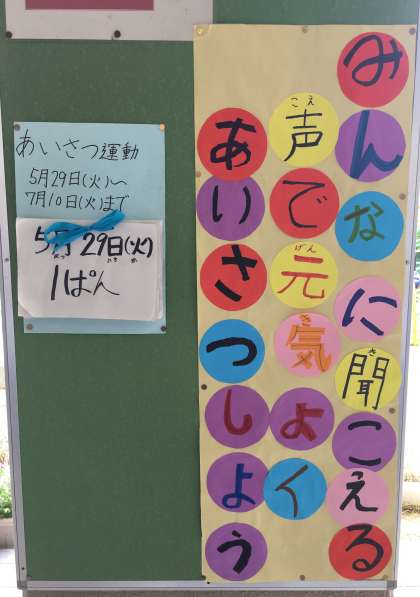 みんなに聞こえる
声で元気よく
あいさつしよう
あいさつ運動
5月29日(火)〜
7月10日(火)まで
5月29日(火)
1ぱん